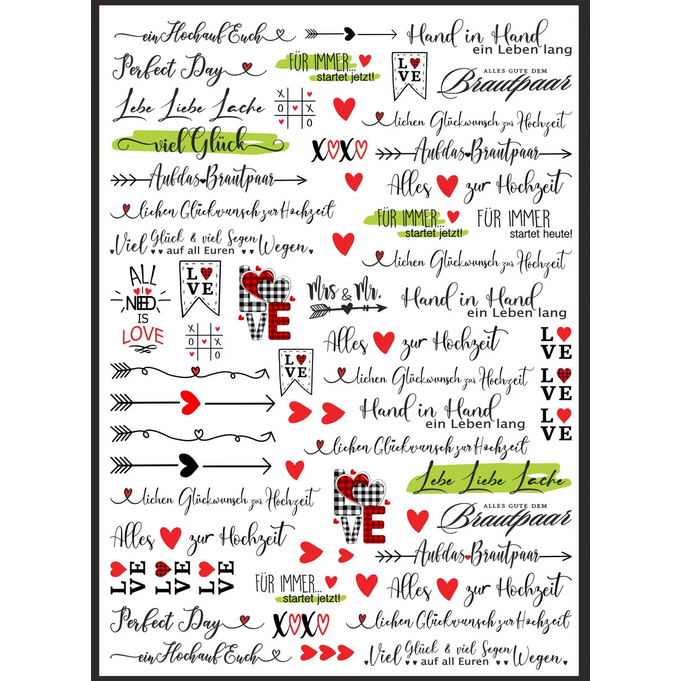 ein Hoch auf Euch
Hand in Hand
ein Leben lang
Perfect Day
FÜR IMMER...
startet jetzt!
LOVE
ALLES GUTE DEM
Brautpaar
Lebe Liebe Lache
X O X
O O
X O X
lichen Glückwunsch zur Hochzeit
viel Glück
XOXO
Auf das Brautpaar
Auf das Brautpaar
Alles zur Hochzeit
lichen Glückwunsch zur Hochzeit
FÜR IMMER...
startet jetzt!
FÜR IMMER
startet heute!
Viel Glück & viel Segen
auf all Euren Wegen.
lichen Glückwunsch zur Hochzeit
ALL
I NEED
IS
LOVE
LOVE
LOVE
Mrs & Mr.
Hand in Hand
ein Leben lang
X O X
O O
X O X
Alles zur Hochzeit
L VE
LOVE
lichen Glückwunsch zur Hochzeit
L VE
Hand in Hand
ein Leben lang
L VE
lichen Glückwunsch zur Hochzeit
Lebe Liebe Lache
lichen Glückwunsch zur Hochzeit
LOVE
ALLES GUTE DEM
Brautpaar
Alles zur Hochzeit
Auf das Brautpaar
L VE
L VE
L VE
FÜR IMMER...
startet jetzt!
Alles zur Hochzeit
Perfect Day
XOXO
lichen Glückwunsch zur Hochzeit
ein Hoch auf Euch
Viel Glück & viel Segen
auf all Euren Wegen.